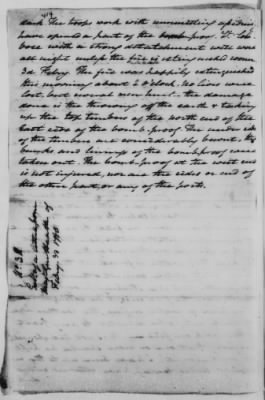 dark The troops work with unremitting
have opened a part of the bomb-proof. Lt.
bose with a strong detatchment will work
all night untill the fire is extinguished
3d Feby. The fire was happily extinguished
this morning about 2 O'clock. No lives were
lost nor wound rec'd. The damage
done is the throwing off the earth & taking
up the top timbers of the north end of the
East side of the bomb-proof. The under side
of the timbers are considerably burnt. the
bunks and lining of the bomb proof were
taken out. The bomb-proof at the west end
is not injured, nor are the sides or end of
the other part or any of the port.
No 38
Feby 3d 1795